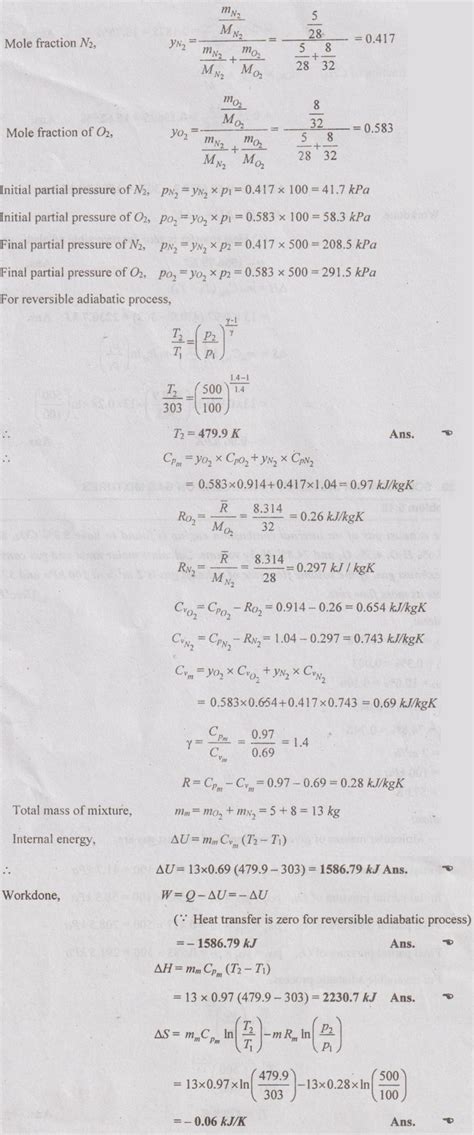 Mole fraction N₂, y_N₂ = (m_N₂/M_N₂) / (m_N₂/M_N₂ + m_O₂/M_O₂) = (5/28) / (5/28 + 8/32) = 0.417
Mole fraction of O₂, y_O₂ = (m_O₂/M_O₂) / (m_N₂/M_N₂ + m_O₂/M_O₂) = (8/32) / (5/28 + 8/32) = 0.583
Initial partial pressure of N₂, p_N₂ = y_N₂ × p₁ = 0.417 × 100 = 41.7 kPa
Initial partial pressure of O₂, p_O₂ = y_O₂ × p₁ = 0.583 × 100 = 58.3 kPa
Final partial pressure of N₂, p_N₂ = y_N₂ × p₂ = 0.417 × 500 = 208.5 kPa
Final partial pressure of O₂, p_O₂ = y_O₂ × p₂ = 0.583 × 500 = 291.5 kPa
For reversible adiabatic process,
T₂/T₁ = (p₂/p₁)^((γ-1)/γ)
T₂/303 = (500/100)^((1.4-1)/1.4)
∴ T₂ = 479.9 K Ans.
∴ C_pm = y_O₂ × C_pO₂ + y_N₂ × C_pN₂
= 0.583×0.914+0.417×1.04 = 0.97 kJ/kgK
R_O₂ = R̄/M_O₂ = 8.314/32 = 0.26 kJ/kgK
R_N₂ = R̄/M_N₂ = 8.314/28 = 0.297 kJ / kgK
C_vO₂ = C_pO₂ – R_O₂ = 0.914 – 0.26 = 0.654 kJ/kgK
C_vN₂ = C_pN₂ – R_N₂ = 1.04 – 0.297 = 0.743 kJ/kgK
C_vm = y_O₂ × C_vO₂ + y_N₂ × C_vN₂
= 0.583×0.654+0.417×0.743 = 0.69 kJ/kgK
γ = C_pm/C_vm = 0.97/0.69 = 1.4
R = C_pm – C_vm = 0.97 – 0.69 = 0.28 kJ/kgK
Total mass of mixture, m_m = m_O₂ + m_N₂ = 5 + 8 = 13 kg
Internal energy, ΔU = m_m C_vm (T₂ – T₁)
∴ ΔU = 13×0.69 (479.9 – 303) = 1586.79 kJ Ans.
Workdone, W = Q – ΔU = – ΔU
(∵ Heat transfer is zero for reversible adiabatic process)
= – 1586.79 kJ Ans.
ΔH = m_m C_pm (T₂ – T₁)
= 13 × 0.97 (479.9 – 303) = 2230.7 kJ Ans.
ΔS = m_m C_pm ln(T₂/T₁) – m R_m ln(p₂/p₁)
= 13×0.97×ln(479.9/303) – 13×0.28×ln(500/100)
= – 0.06 kJ/K Ans.